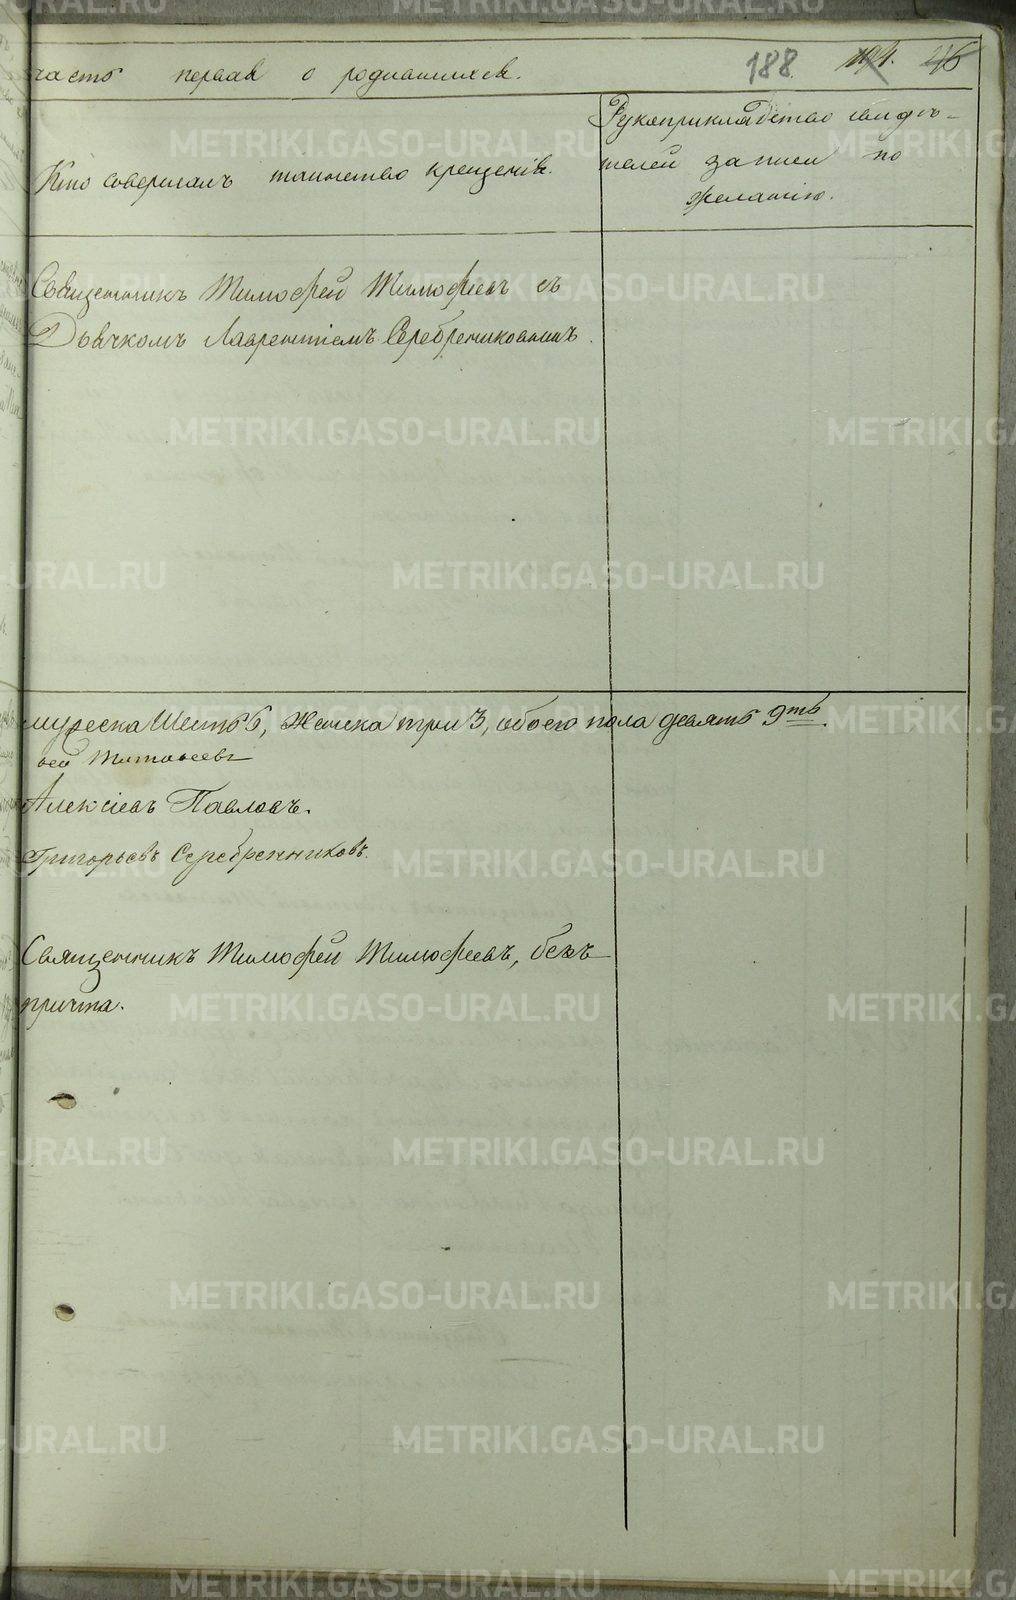 часть первая о родившихся.
188 194. 46
Кто совершалъ таинство крещенія.
Рукоприкладство свидѣ-
телей записи по
желанію.
Священникъ Тимофей Тимофѣевъ съ
Дьячкомъ Лаврентіемъ Серебрениковымъ.
мужеска Шесть 6, Женска три 3, обоего пола девять 9ть.
Алексіевъ Павловъ.
Григорьевъ Серебренниковъ.
Священникъ Тимофей Тимофеевъ, безъ
причта.
METRIKI.GASO-URAL.RU